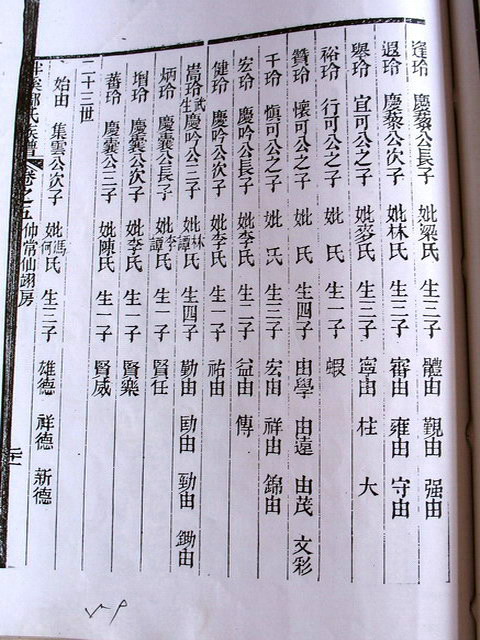 逢玲 慶藜公長子 妣梁氏 生三子 體由 觀由 强由
遐玲 慶藜公次子 妣林氏 生三子 審由 雍由 守由
舉玲 宜可公之子 妣麥氏 生三子 寧由 柱 大
裕玲 行可公之子 妣 氏 生一子 蝦
贊玲 懷可公之子 妣 氏 生四子 由學 由遠 由茂 文彩
千玲 愼可公之子 妣 氏 生三子 宏由 祥由 錦由
宏玲 慶吟公長子 妣李氏 生二子 益由 傳
健玲 慶吟公次子 妣李氏 生一子 祐由
嵩玲武生 慶吟公三子 妣林譚氏 生四子 勤由 勛由 勁由 鋤由
炳玲 慶囊公長子 妣李譚氏 生一子 賢任
琄玲 慶囊公次子 妣李氏 生一子 賢樂
蕃玲 慶囊公三子 妣陳氏 生一子 賢威
二十三世
始由 集雲公次子 妣馮何氏 生三子 雄德 祥德 新德
氏族譜 卷之五仲常仙翊房